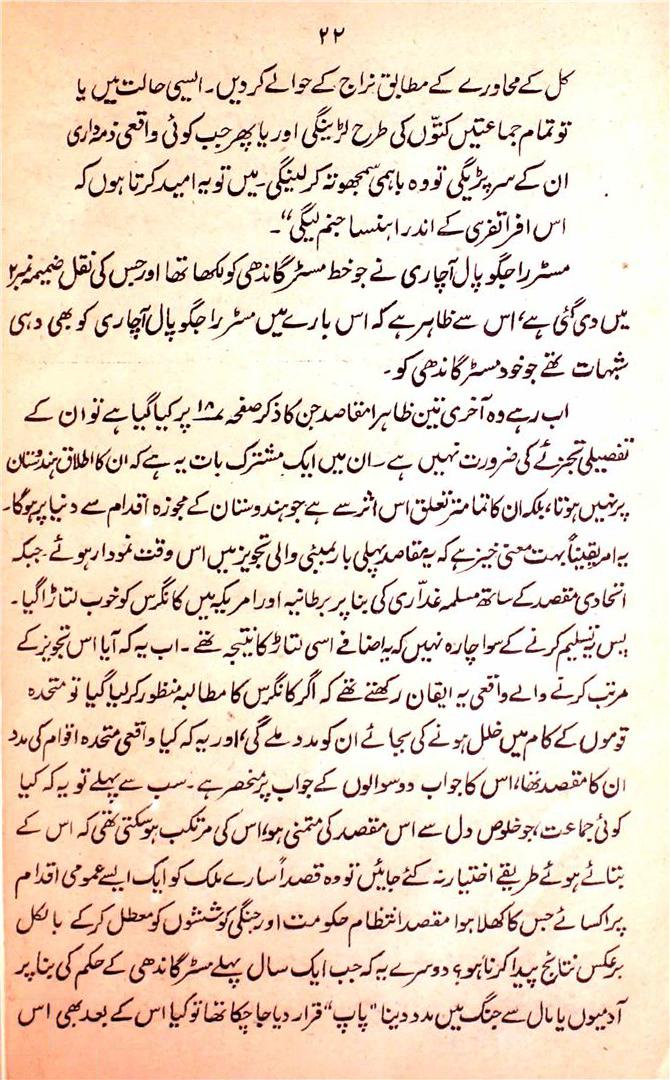 ۲۲
کل کے محاورے کے مطابق نراج کے حوالے کر دیں۔ ایسی حالت میں یا
تو تمام جماعتیں کتّوں کی طرح لڑینگی اور یا پھر جب کوئی واقعی ذمہ داری
ان کے سر پڑیگی تو وہ باہمی سمجھوتہ کر لینگی۔ میں تو یہ امید کرتا ہوں کہ
اس افراتفری کے اندر اہنسا جنم لیگی“۔
مسٹر راجگوپال آچاری نے جو خط مسٹر گاندھی کو لکھا تھا اور جس کی نقل ضمیمہ نمبر ۲
میں دی گئی ہے، اس سے ظاہر ہے کہ اس بارے میں مسٹر راجگوپال آچاری کو بھی وہی
شبہات تھے جو خود مسٹر گاندھی کو۔
اب رہے وہ آخری تین ظاہرا مقاصد جن کا ذکر صفحہ ۱۸ پر کیا گیا ہے تو ان کے
تفصیلی تجزئے کی ضرورت نہیں ہے۔ ان میں ایک مشترک بات یہ ہے کہ ان کا اطلاق ہندوستان
پر نہیں ہوتا، بلکہ ان کا تمامتر تعلق اس اثر سے ہے جو ہندوستان کے مجوزہ اقدام سے دنیا پر ہوگا۔
یہ امر یقیناً بہت معنی خیز ہے کہ یہ مقاصد پہلی بار بمبئی والی تجویز میں اس وقت نمودار ہوئے جبکہ
اتحادی مقصد کے ساتھ مسلمہ غدّاری کی بنا پر برطانیہ اور امریکہ میں کانگرس کو خوب لتاڑا گیا۔
پس یہ تسلیم کرنے کے سوا چارہ نہیں کہ یہ اضافے اسی لتاڑ کا نتیجہ تھے۔ اب یہ کہ آیا اس تجویز کے
مرتب کرنے والے واقعی یہ ایقان رکھتے تھے کہ اگر کانگرس کا مطالبہ منظور کر لیا گیا تو متحدہ
قوموں کے کام میں خلل ہونے کی بجائے ان کو مدد ملے گی، اور یہ کہ کیا واقعی متحدہ اقوام کی مدد
ان کا مقصد تھا، اس کا جواب دو سوالوں کے جواب پر منحصر ہے۔ سب سے پہلے تو یہ کہ کیا
کوئی جماعت، جو خلوص دل سے اس مقصد کی متمنی ہو، اس کی مرتکب ہو سکتی تھی کہ اس کے
بتائے ہوئے طریقے اختیار نہ کئے جائیں تو وہ قصداً سارے ملک کو ایک ایسے عمومی اقدام
پر اکسائے جس کا کھلا ہوا مقصد انتظام حکومت اور جنگی کوششوں کو معطل کر کے بالکل
برعکس نتائج پیدا کرنا ہو؟ دوسرے یہ کہ جب ایک سال پہلے مسٹر گاندھی کے حکم کی بنا پر
آدمیوں یا مال سے جنگ میں مدد دینا "پاپ" قرار دیا جا چکا تھا تو کیا اس کے بعد بھی اس